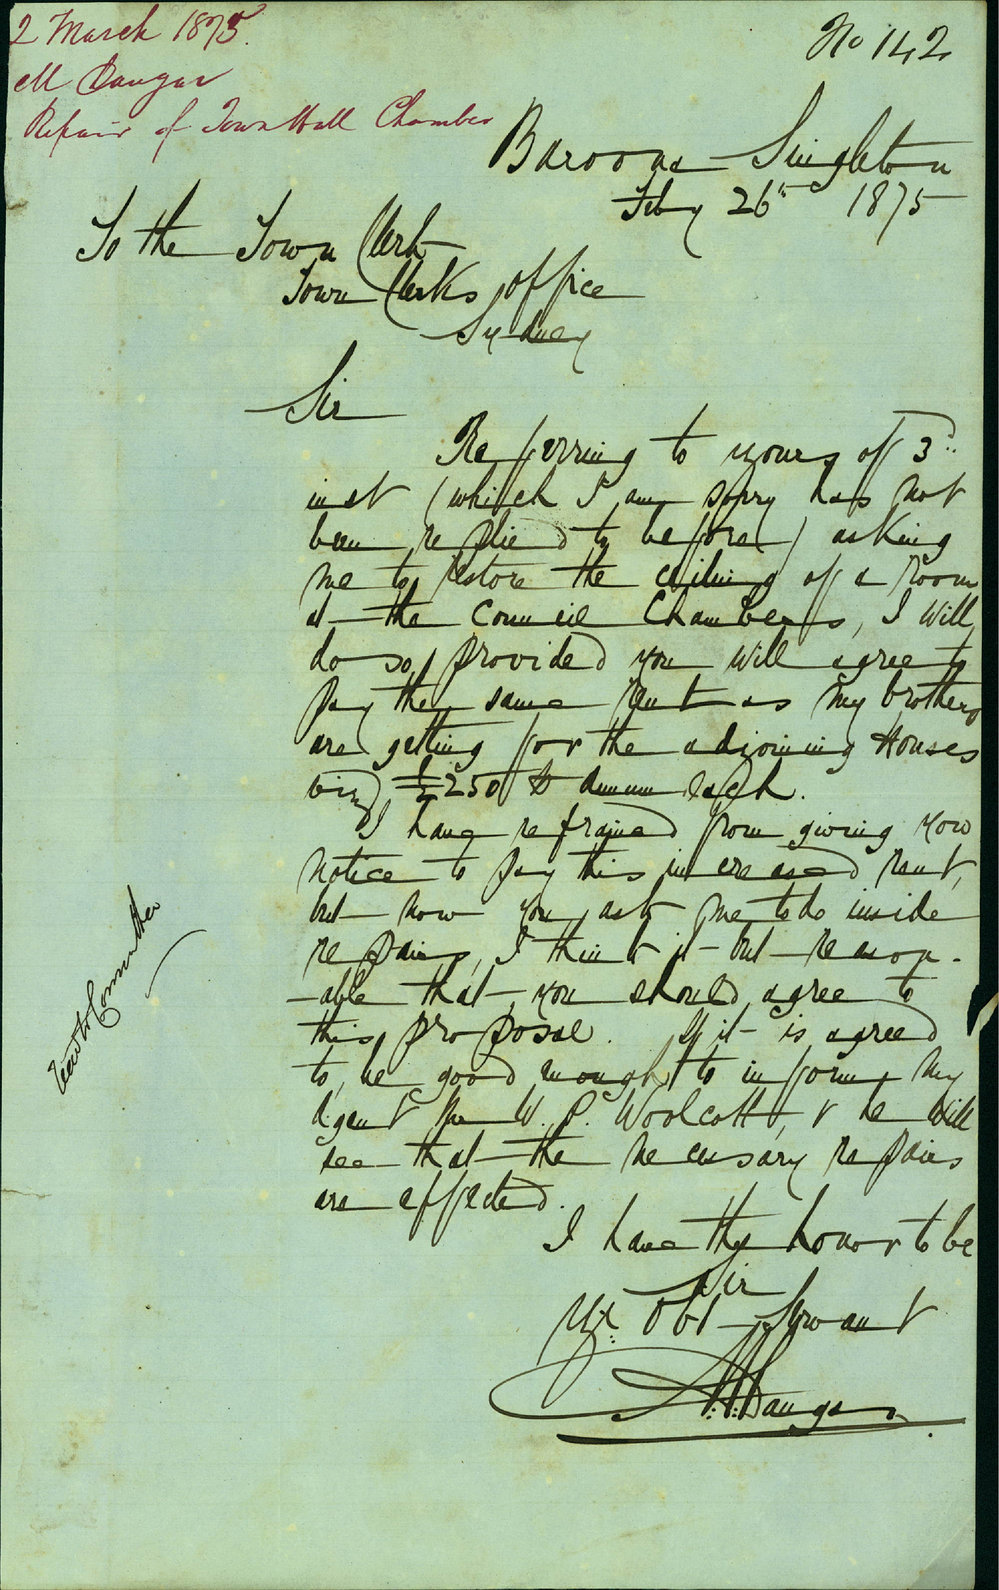 2 March 1875.
Dangar
Repair of Town Hall Chamber
No 142
Baroona Singleton
Feby 26th 1875
To the Town Clerk
Town Clerks office
Sydney
Sir
Referring to yours of 3rd
inst (which I am sorry has not
been replied to before) asking
me to restore the ceiling of a room
at the Council Chambers, I will
do so, provided you will agree to
pay the same rent as my brothers
are getting for the adjoining Houses
viz, £250 annum each.
I have refrained from giving you
notice to pay this increased rent,
but now you ask me to do inside
repairs, I think it but reason-
-able that you should agree to
this proposal. If it is agreed
to, be good enough to inform my
Agent Mr W. P. Woolcott, & he will
see that the necessary repairs
are effected.
I have the honor to be
Sir
Yr Obt Servant
Dangar
Committee